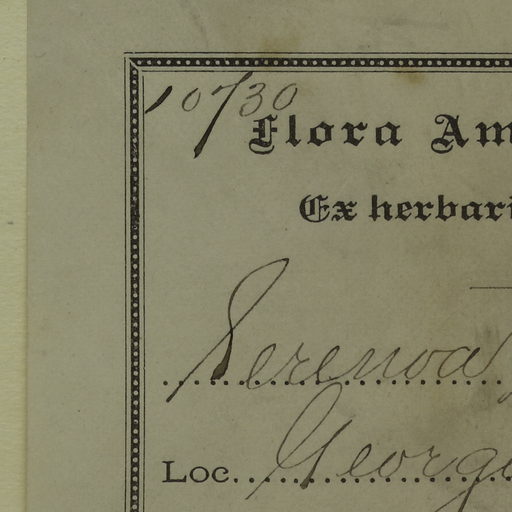 10730
Flora Am
Ex herbari
Serenoa
Loc. Georg